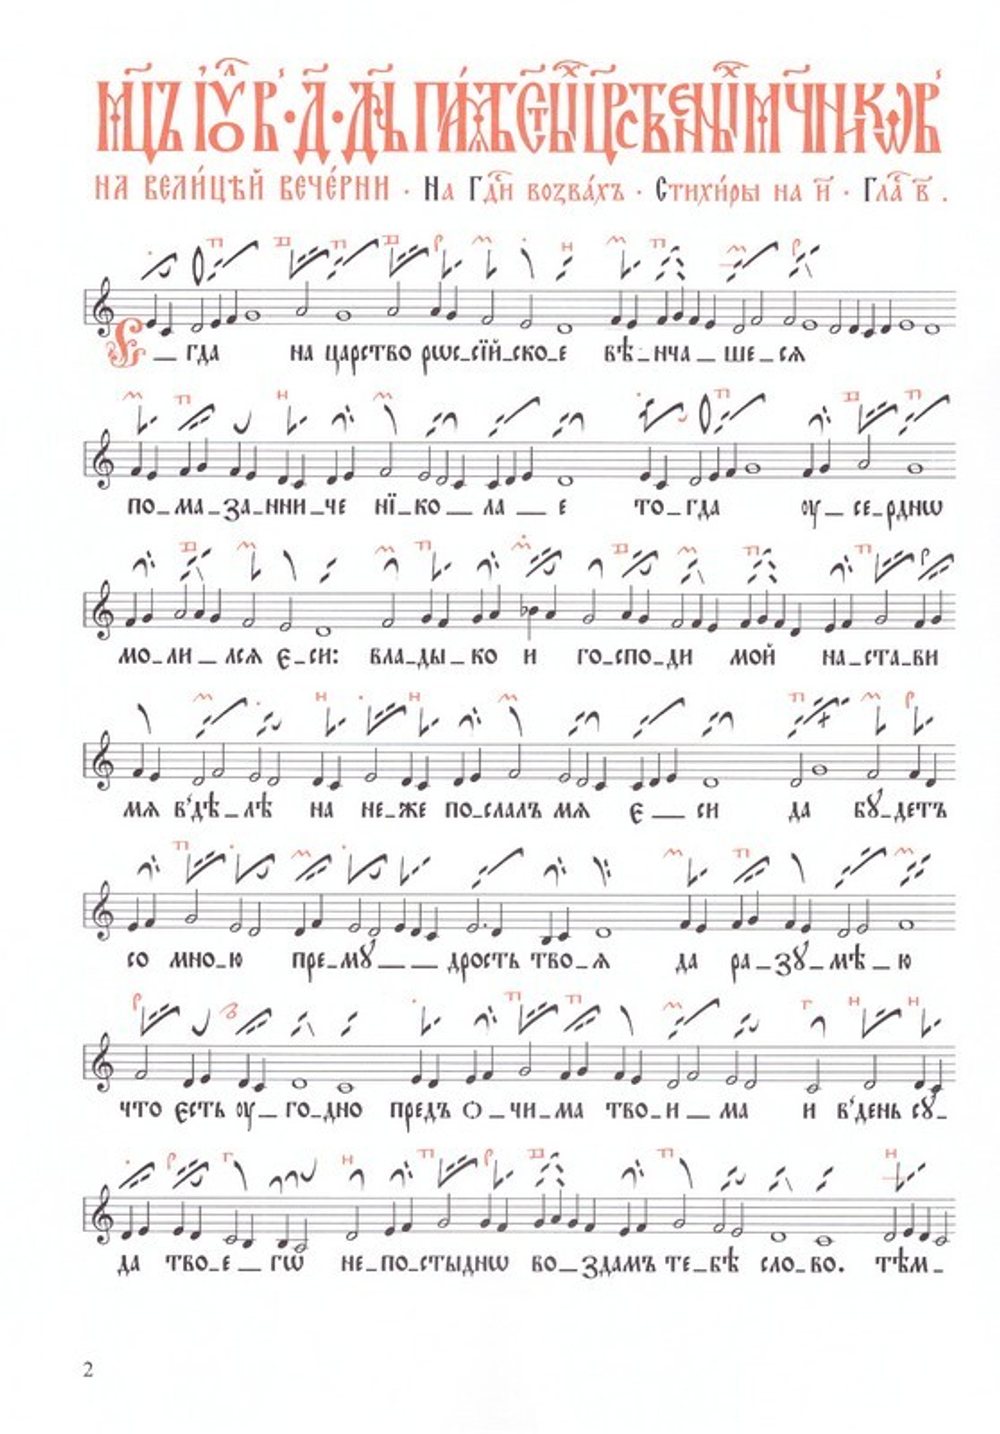 мц҃ъ і҆у́лі́й в҃ · д҃ · дн҃ь па́мѧть ст҃ы́хъ цр҃ственныхъ мч҃никѡвъ
на вели́цѣй вече́рни · На Гдⷭ҇и воззва́хъ · Стихи́ры на и҃ · Гла́съ в҃ .
Є_гда на царство рѡс_сїй_ско_е вѣ_нча_ше_сѧ
по_ма_за_нни_че нї_ко_ла_е то_гда оу_се_рднѡ
мо_ли_лсѧ є_си: вла_ды_ко и го_спо_ди мой на_ста_ви
мѧ в'дѣ_лѣ на не_же по_слалъ мѧ є_си да бꙋ_детъ
со мно_ю пре_мꙋ_дрость тво_ѧ да ра_зꙋ_мѣ_ю
что єсть оу_го_дно предъ о_чи_ма тво_и_ма и в'день сꙋ_
да тво_е_гѡ не_по_стыднѡ во_здамъ те_бѣ сло_во. тѣм_
2